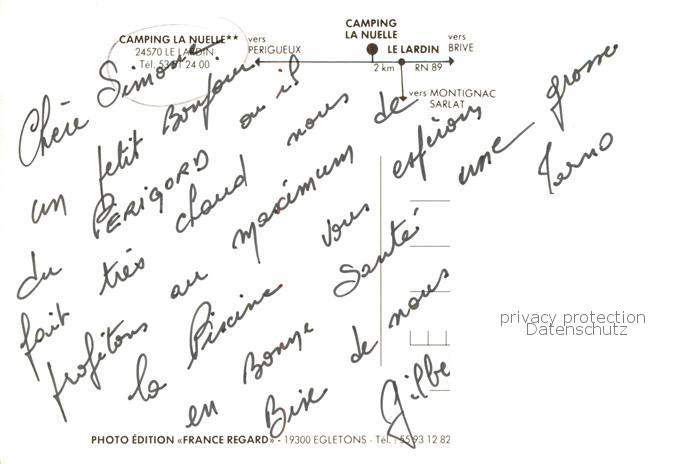 CAMPING LA NUELLE**
24570 LE LARDIN
Tél. 53 51 24 00
vers
PERIGUEUX
CAMPING
LA NUELLE
LE LARDIN
vers
BRIVE
2 km
RN 89
vers MONTIGNAC
SARLAT
Chère Simone
un petit Bonjour
du PÉRIGORD ou il
fait très chaud nous
profitons au maximum de
la Piscine vous espérons
en Bonne Santé une grosse
Bise de nous
Gilbe
privacy protection
Datenschutz
PHOTO ÉDITION «FRANCE REGARD» - 19300 EGLETONS - Tél. : 55 93 12 82